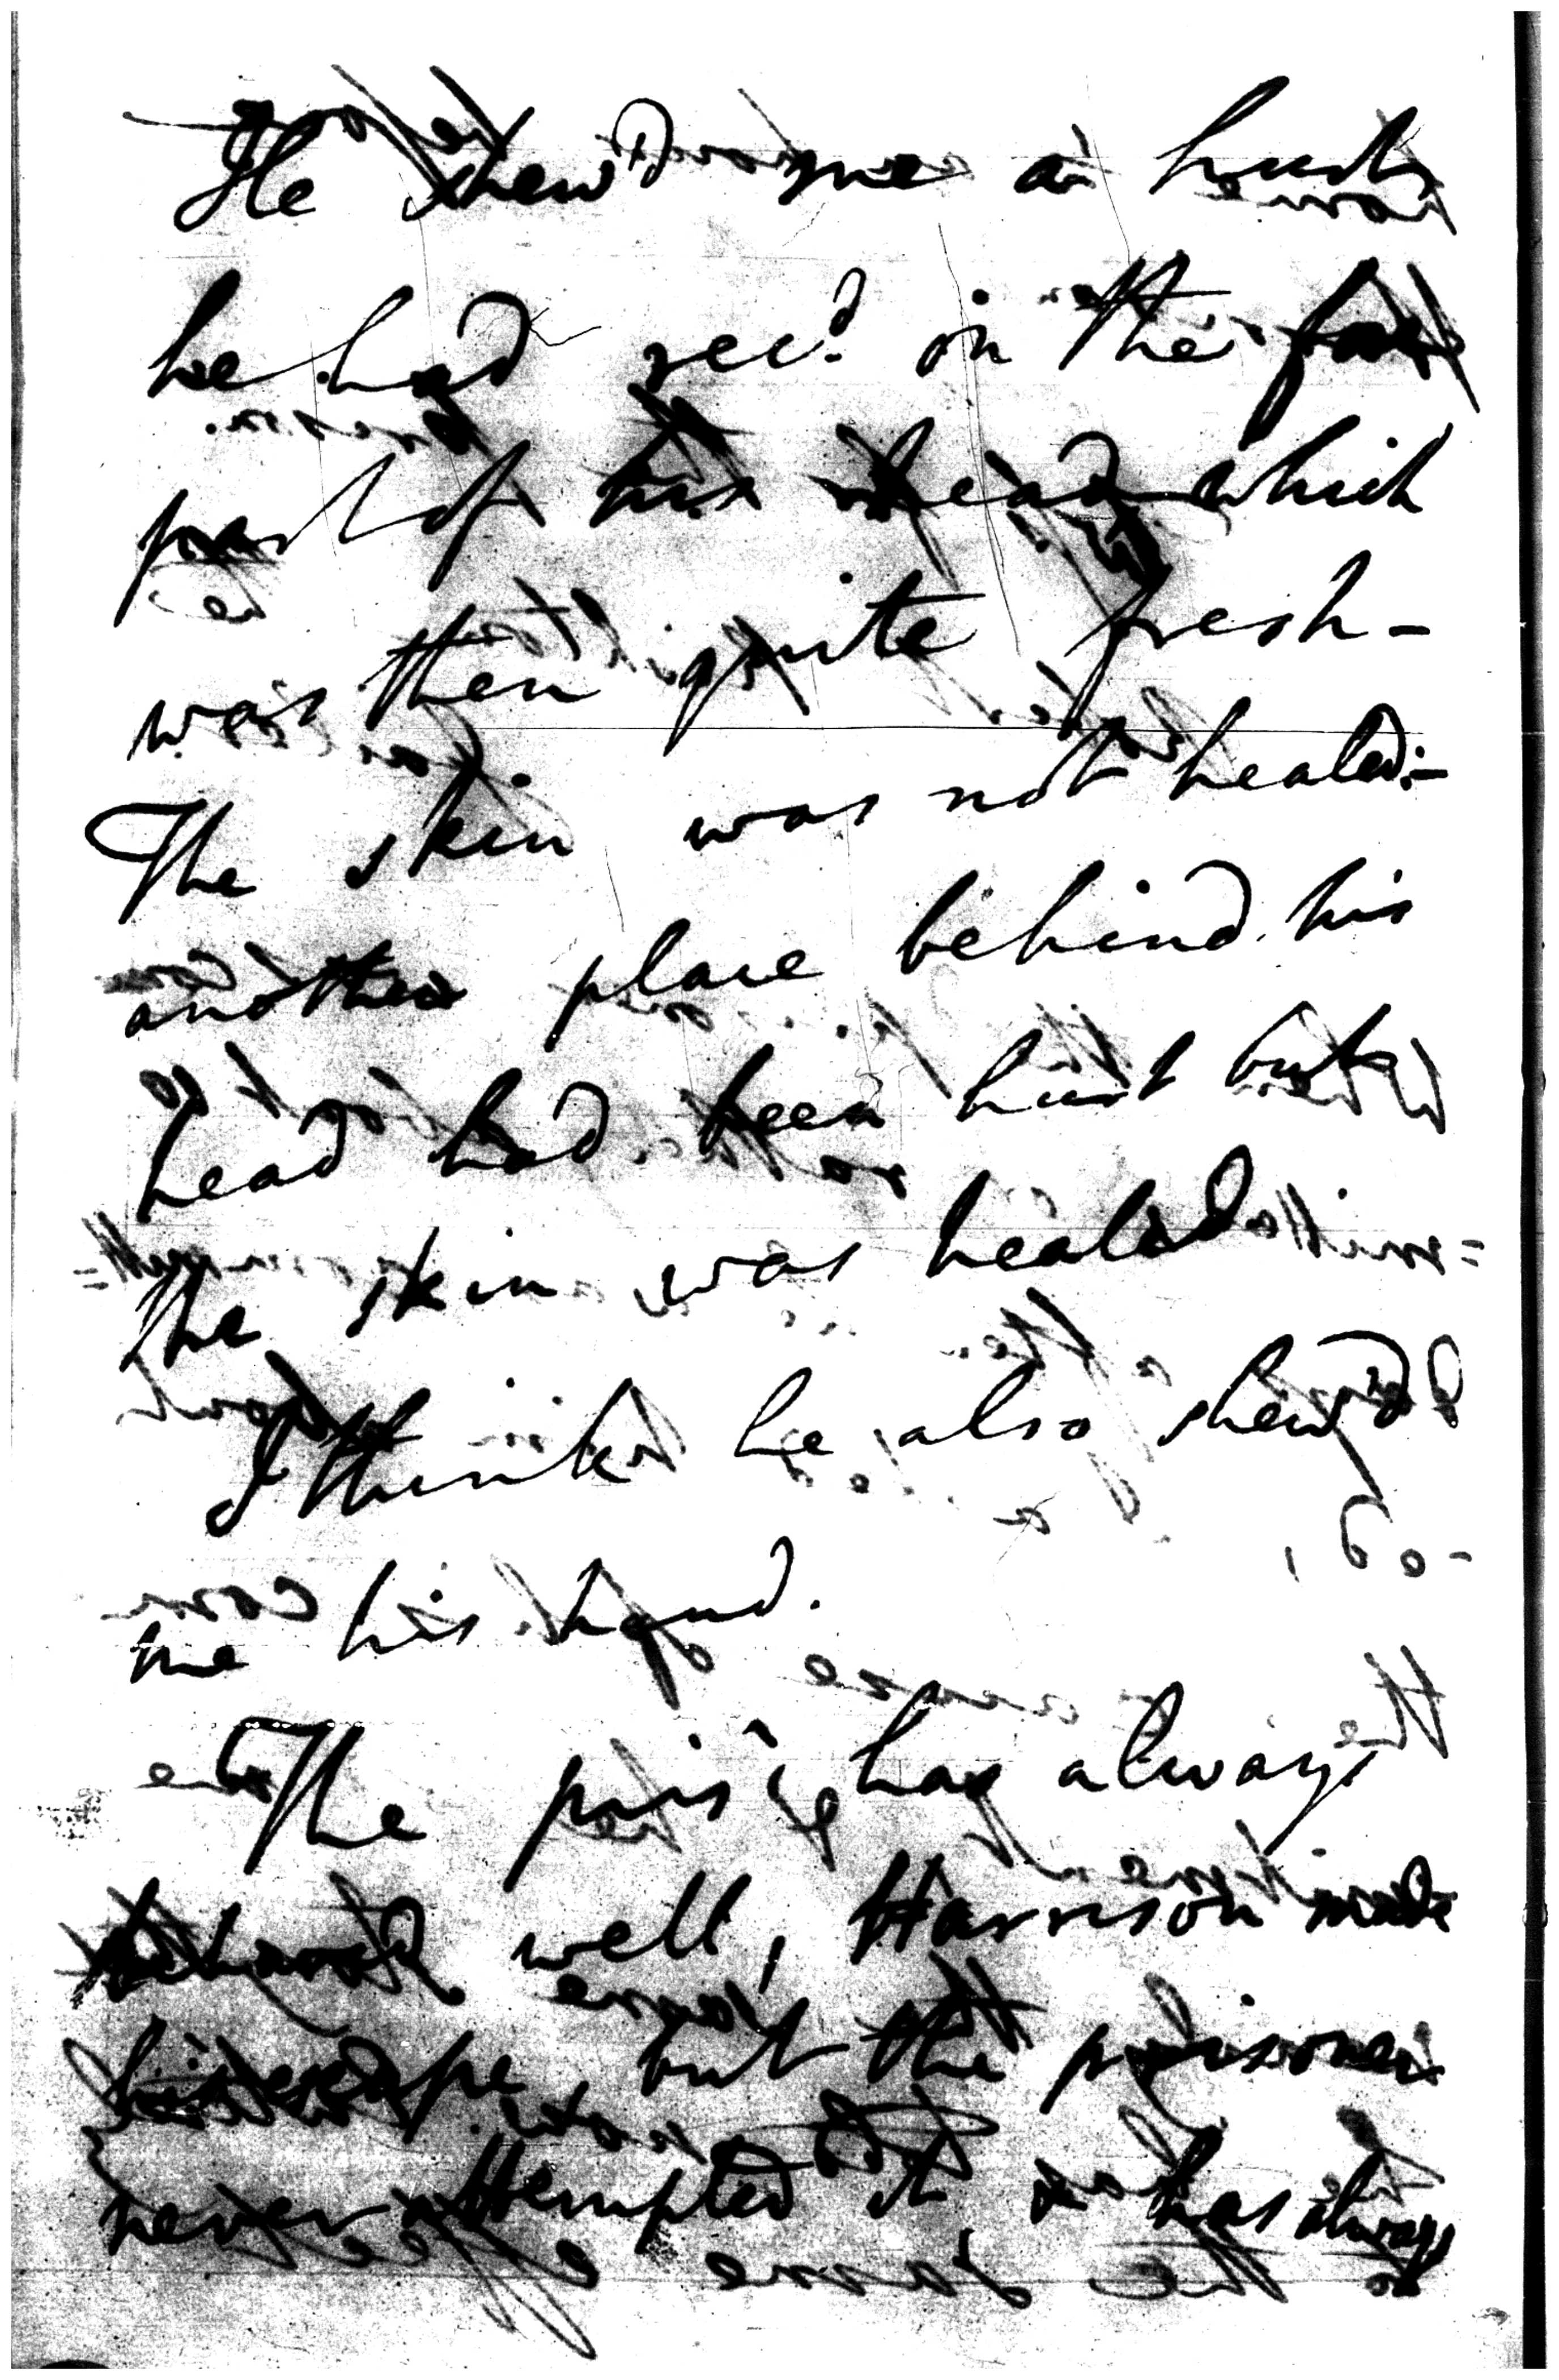 He shew'd me a hurt
he had rec.d in the fore
part of his head which
was then quite fresh -
The skin was not healed :-
another place behind his
head had been hurt but
the skin was healed
I think he also shew'd
me his hand.
The pris.r has always
behaved well, Harrison made
his escape, but the prisoner
never attempted it & has always